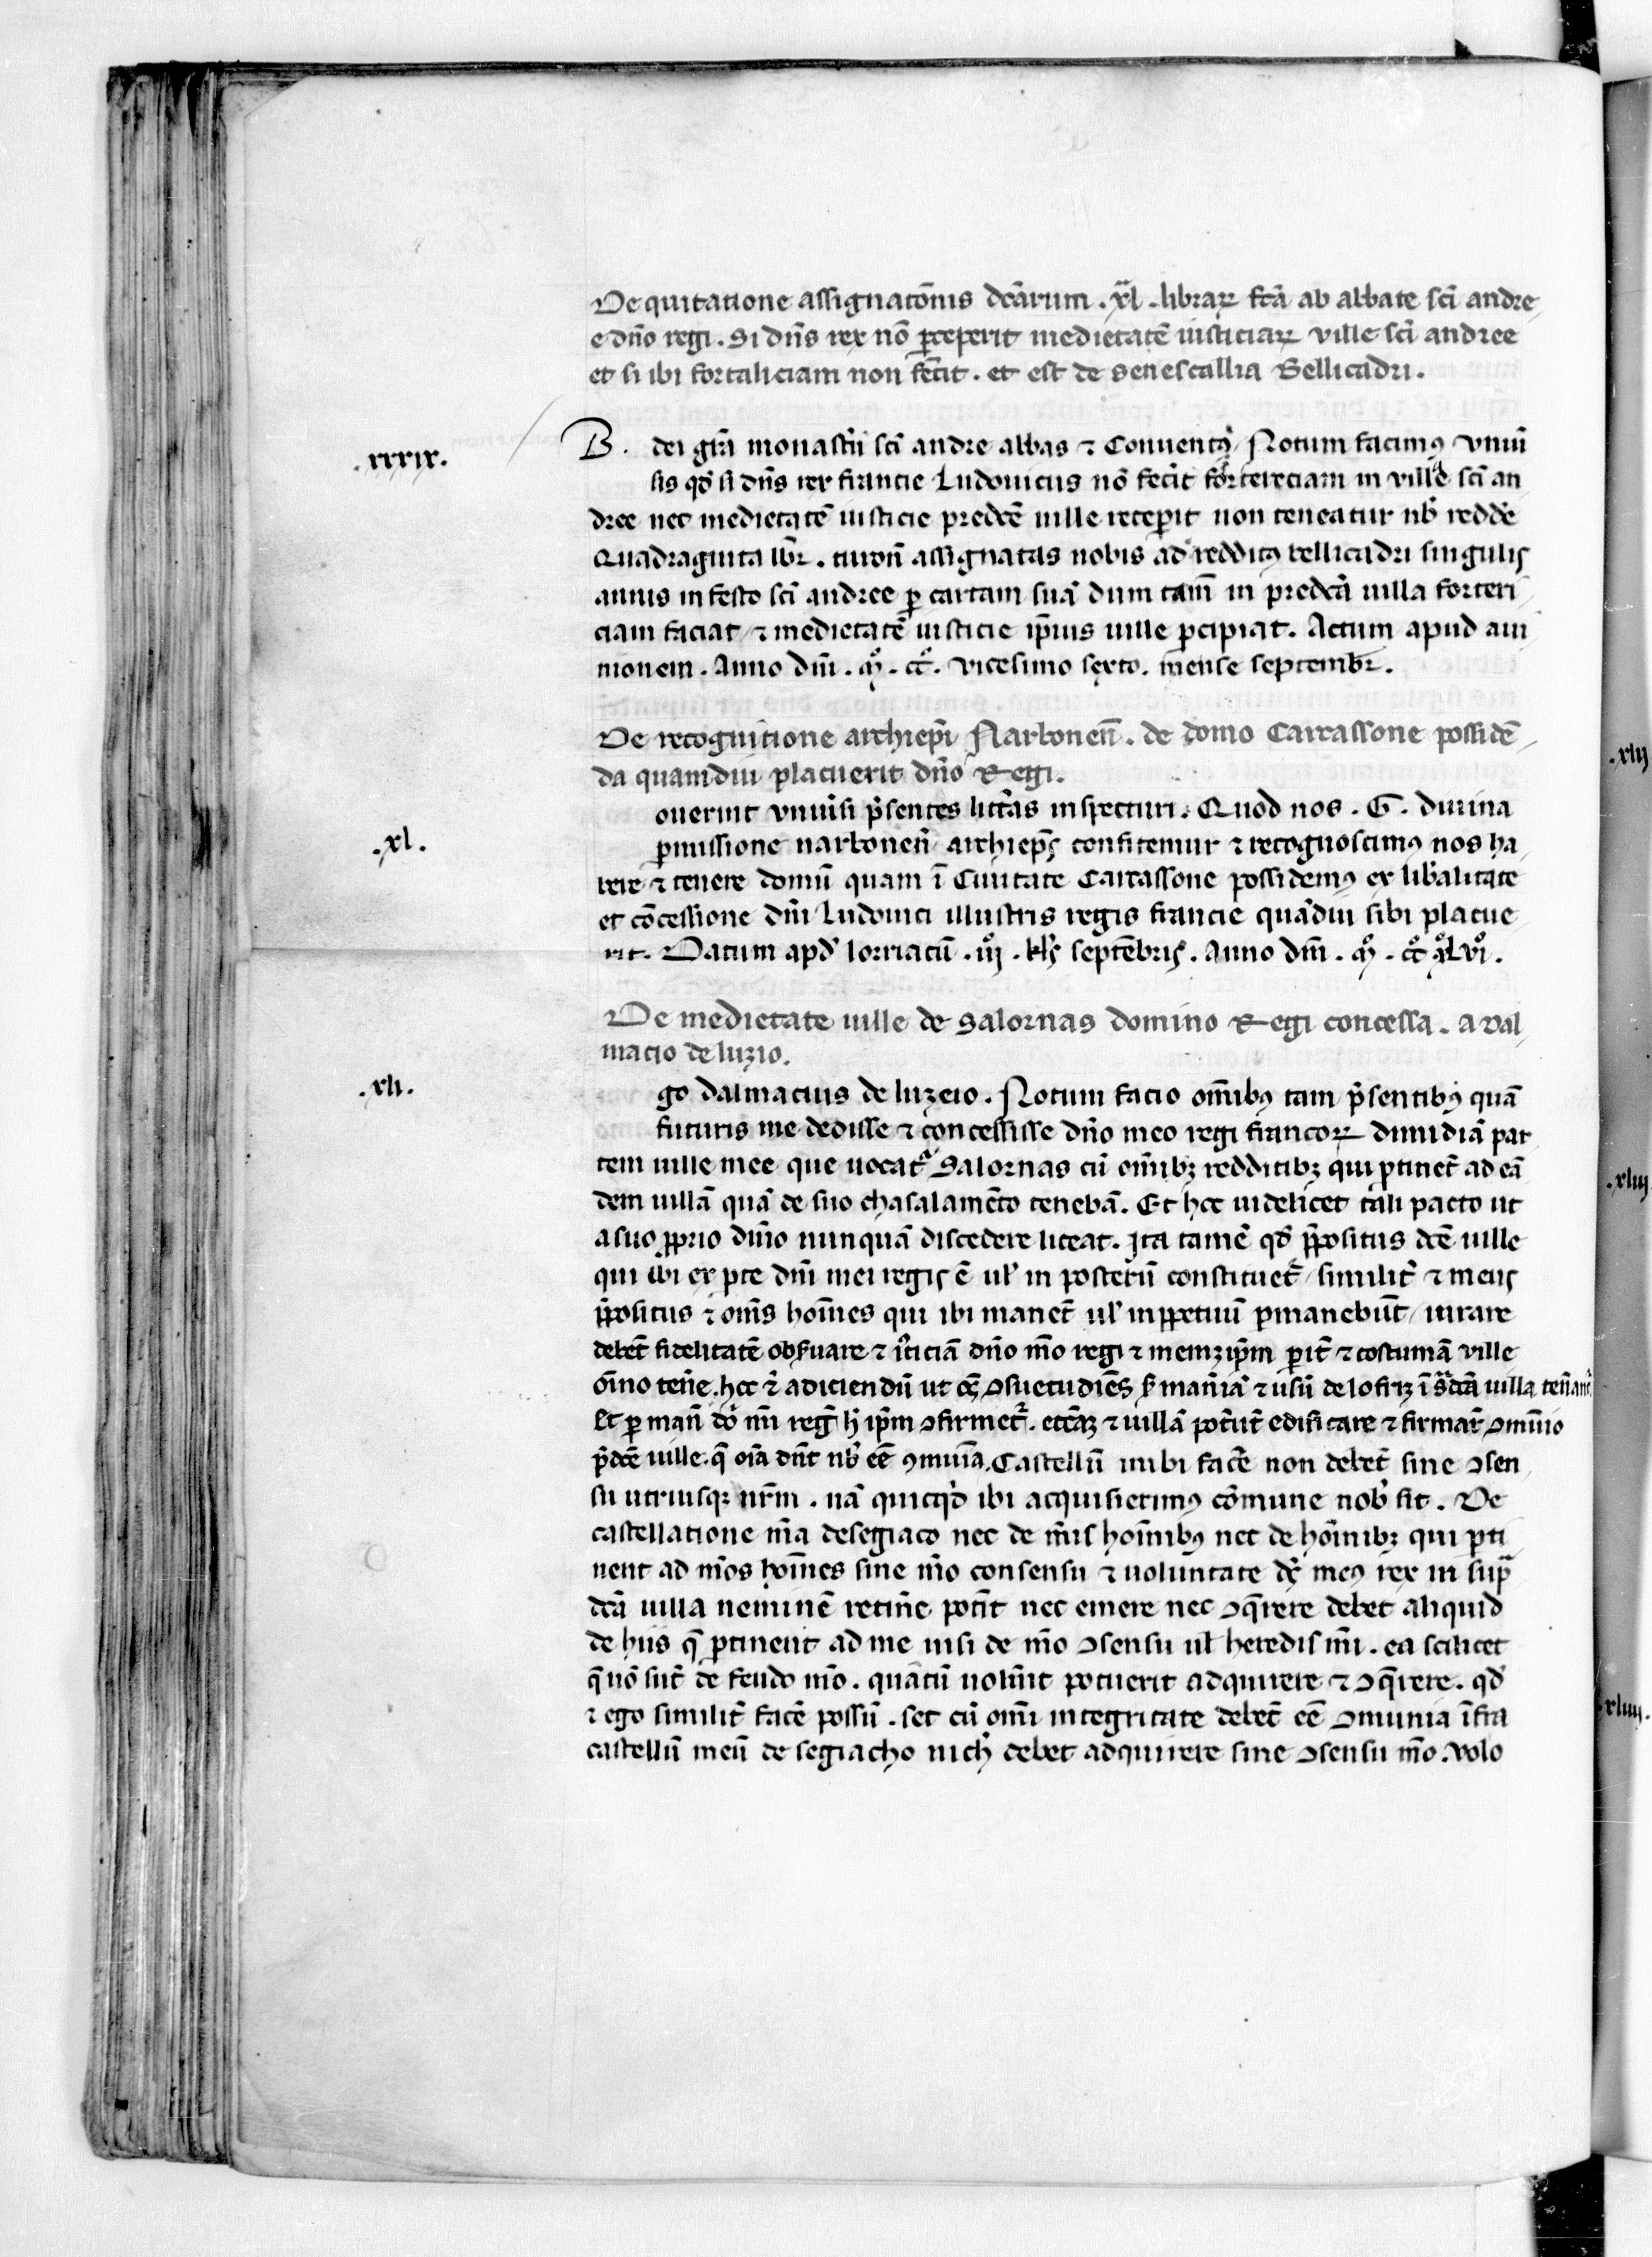 De quitatione assignatōnis dc̄arum . xl . librarꝝ fc̄a ab abbate sc̄i andre
e dn̄o regi . Si dn̄s rex nō ꝑceperit medietatē iusticiarꝝ ville sc̄i andree
et si ibi fortaliciam non fec̄it . et est de senescallia Bellicadri .
.xxxix.
B . dei gr̄a monast̄ii sc̄i andre abbas ⁊ Conventꝰ Notum facimꝰ vniu̅
sis qd̓ si dn̄s rex francie Ludouicus nō fec̄it fortereciam in villa sc̄i an
dree nec medietatē iusticie predc̄e uille recep̄it non teneatur nb̓ redde̅
Quadraginta libr̄ . turon̄ assignatas nobis ad redditꝰ bellicadri singulis
annis in festo sc̄i andree ꝑ cartam suā dum tam̄ in predc̄a uilla forteri
ciam faciat / ⁊ medietatē iusticie ip̄ius uille ꝑcipiat . Actum apud aui
nionem . Anno dn̄i . mͦ . ccͦ . vicesimo sexto . mense septembr̄ .
De recognitione archiep̄i Narbonen̄ . de domo Carcassone possidē
da quamdiu placuerit dn̄o Regi .
.xl.
ouerint vniu̅si p̄sentes litt̄as inspecturi . Quod nos . G . diuina
ꝑmissione narbonen̄ archiep̄s confitemur ⁊ recognoscimꝰ nos ha
bere ⁊ tenere domū quam ī Ciuitate Carcassone possidemꝰ ex lib̄alitate
et cōcessione dn̄i Ludouici illustris regis francie quādiu sibi placue
rit . Datum apd̓ lorriacū . iiiͦ . kl̄s septēbris . Anno dn̄i . mͦ . ccͦ xlͦviͦ .
De medietate uille de Salornas domino Regi concessa . a dal
macio de luzio .
.xli.
go dalmacius de luzeio . Notum facio om̄ibꝰ tam p̄sentibꝰ quā
futuris me dedisse ⁊ concessisse dn̄o meo regi francorꝝ dimidiā par
tem uille mee que uocat̄ Salornas cū om̄ibꝫ redditibꝫ qui ꝑtinēt ad eā
dem uillā quā de suo chasalamēto tenebā . Et hec uidelicet tali pacto ut
a suo ꝓprio dn̄io nunquā discedere liceat . Ita tamē qd̓ p̄positus dc̄e uille
qui ibi ex ꝑte dn̄i mei regis ē ul̓ in posterū constituet̄ / similit̄ ⁊ meus
p̄positus ⁊ om̄s hoīes qui ibi manēt ul̓ inꝑpetuū ꝑmanebūt / iurare
debēt fidelitatē obs̓uare ⁊ ⁊ dn̄o m̄o regi ⁊ ꝑit̄ ⁊ costumā ville
om̄ino ten̄e . hec ⁊ adiciendū ut ⁊ usū de ī uilla
Et ꝑ ip̄m ꝯfirmet̄ . ⁊ uillā pot̄ūt edificare ⁊ firmar̄ ꝯmunio
p̄dc̄e uille . q̄ oīa nb̓ eē ꝯmunia . Castellū m̄ ibi fac̄e non debet̄ sine ꝯsen
su utriusqꝫ nr̄m . nā quicqd̓ ibi acquisierimꝰ cōmune nob̓ sit . De
castellatione m̄a desegiaco nec de m̄is hoīnibꝰ nec de hoīnibꝫ qui ꝑti
nent ad m̄os hoīnes sine m̄o consensu ⁊ uoluntate dn̄s meꝰ rex in sup̄
dc̄a uilla neminē retin̄e pot̄it nec emere nec ꝯq̄rere debet aliquid
de hiis q̄ ꝑtinent ad me nisi de m̄o ꝯsensu ul̓ heredis m̄i . ea scilicet
q̄ nō sūt de feudo m̄o . quātū uolu̅it potuerit adquirere ⁊ ꝯq̄rere . qd̓
⁊ ego similit̄ fac̄e possū . set cū om̄i integritate debēt eē ꝯmunia īfra
castellū meū de segiacho nich̓ debet adquirere sine ꝯsensu m̄o . volo
.xlii
.xliii
xliiii.